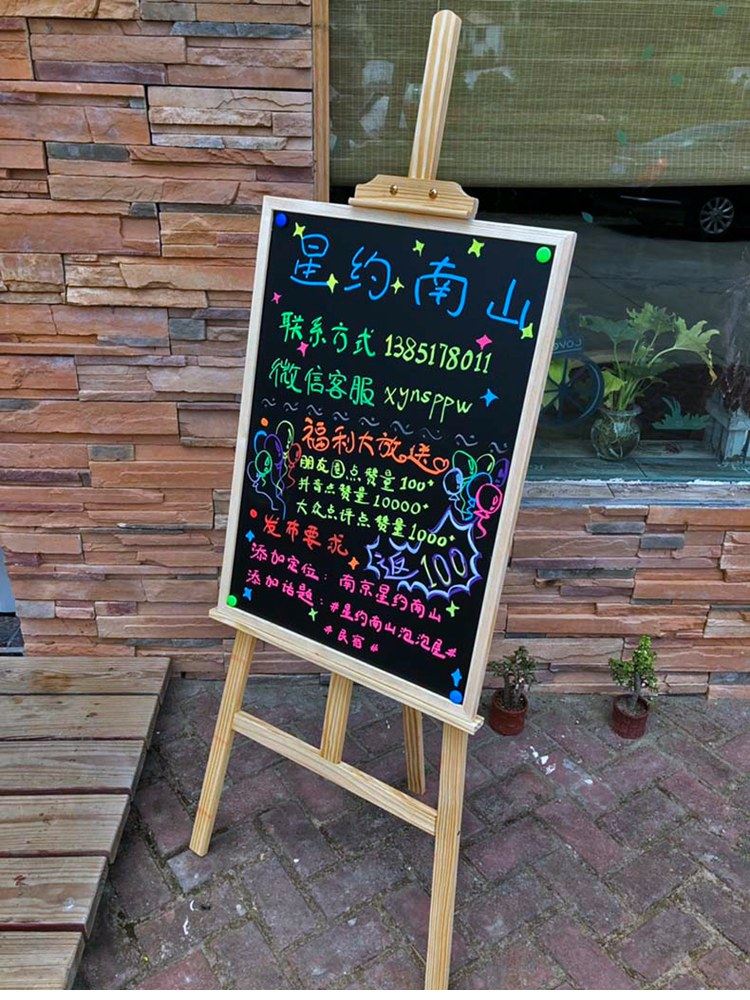 星约南山
联系方式 1385178011
微信客服 xynsppw
福利大放送
朋友圈点赞量100+
抖音点赞量10000+
大众点评点赞量1000+
返100
发布要求
添加定位：南京星约南山
添加话题：#星约南山泡泡屋#
#民宿#